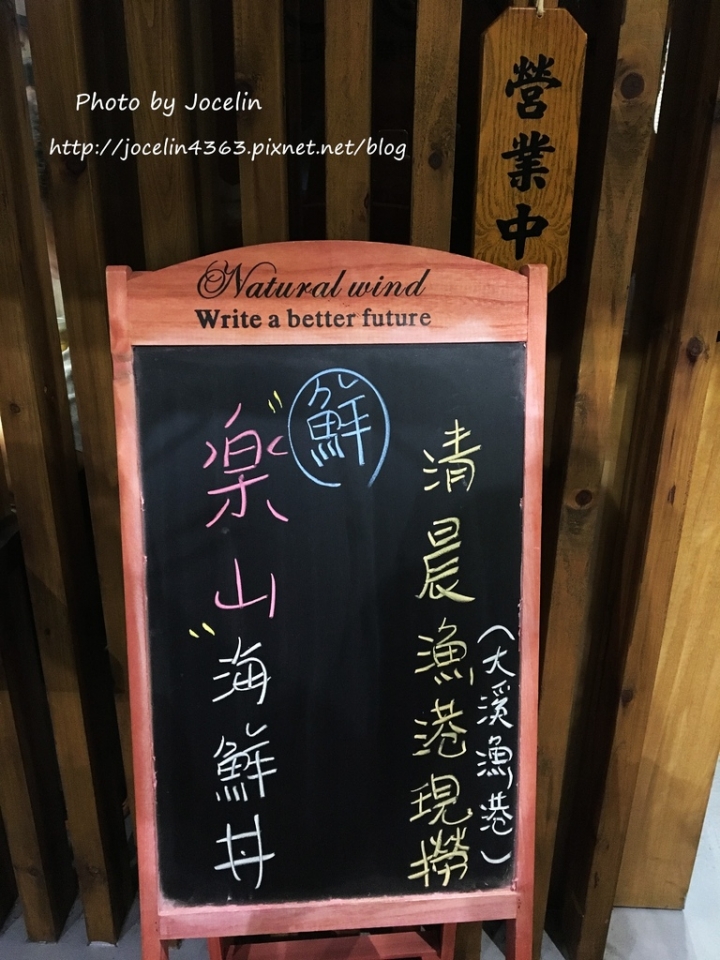 Photo by Jocelin
http://jocelin4363.pixnet.net/blog
營業中
Natural wind
Write a better future
清晨漁港現撈
(大溪漁港)
鮮
"楽山"海鮮丼